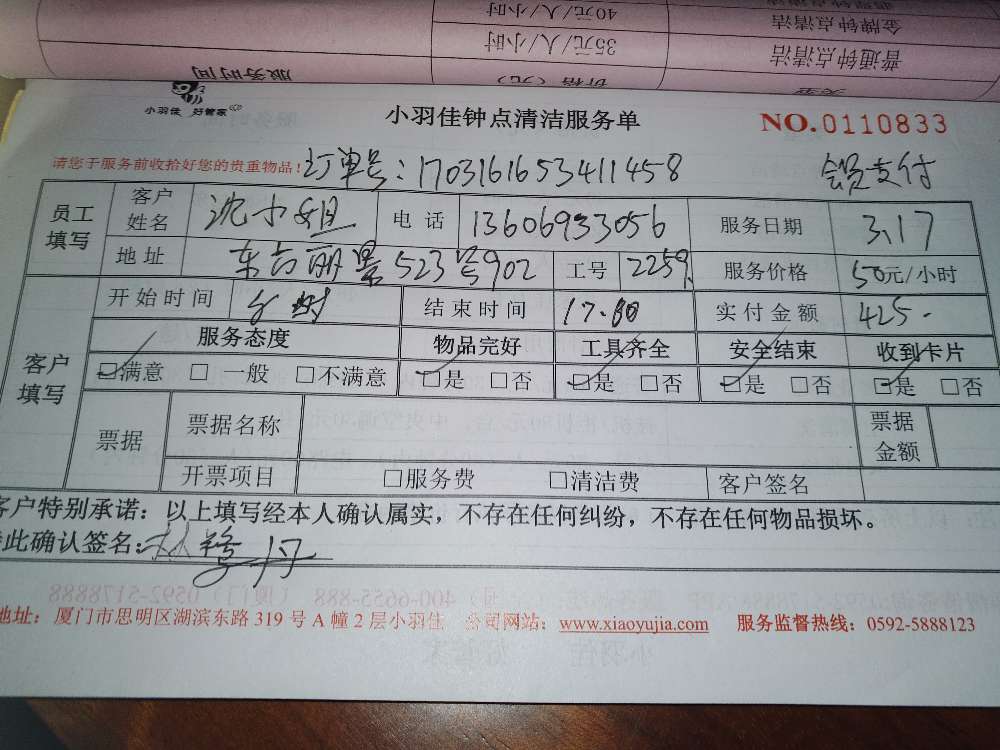 40元/人/小时 金牌钟点清洁
35元/人/小时 普通钟点清洁
服务时间 价格（元） 类型
小羽佳 好管家
小羽佳钟点清洁服务单 NO.0110833
请您于服务前收拾好您的贵重物品！ 订单号：17031616534411458 会员支付
员工填写 客户姓名 沈小姐 电话 13606933056 服务日期 3.17
地址 东方丽景523号902 工号 2259 服务价格 50元/小时
开始时间 结束时间 17.00 实付金额 425.
客户填写 服务态度 物品完好 工具齐全 安全结束 收到卡片
满意 一般 不满意 是 否 是 否 是 否 是 否
票据 票据名称 票据金额
开票项目 服务费 清洁费 客户签名
客户特别承诺：以上填写经本人确认属实，不存在任何纠纷，不存在任何物品损坏。
此确认签名：
地址：厦门市思明区湖滨东路 319 号 A 幢 2 层小羽佳 公司网站：www.xiaoyujia.com 服务监督热线：0592-5888123